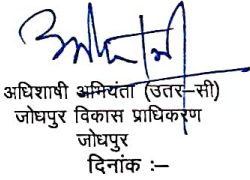 अधिशाषी अभियंता (उतर–सी)
जोधपुर विकास प्राधिकरण
जोधपुर
दिनांक :–